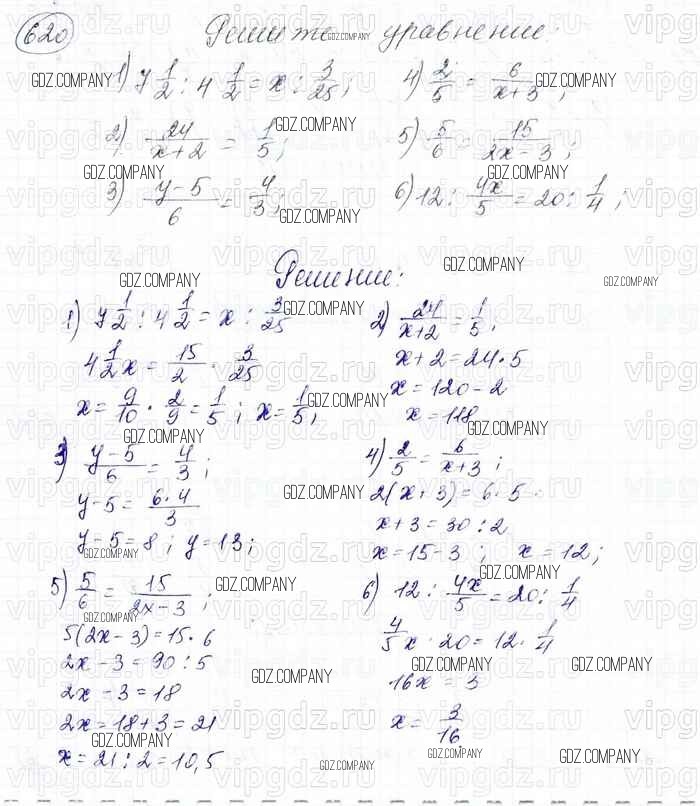 620 Решите уравнение:
1) 7 1/2 : 4 1/2 = x : 3/25; 4) 2/5 = 6/(x+3);
2) 24/(x+2) = 1/5; 5) 5/6 = 15/(2x-3);
3) (y-5)/6 = 4/3; 6) 12 : 4x/5 = 20 : 1/4;
Решение:
1) 7 1/2 : 4 1/2 = x : 3/25
4 1/2 x = 15/2 · 3/25
x = 9/10 · 2/9 = 1/5; x = 1/5;
2) 24/(x+2) = 1/5;
x+2 = 24·5
x = 120-2
x = 118
3) (y-5)/6 = 4/3;
y-5 = (6·4)/3
y-5 = 8; y = 13;
4) 2/5 = 6/(x+3);
2(x+3) = 6·5
x+3 = 30:2
x = 15-3; x = 12;
5) 5/6 = 15/(2x-3);
5(2x-3) = 15·6
2x-3 = 90:5
2x-3 = 18
2x = 18+3 = 21
x = 21:2 = 10,5
6) 12 : 4x/5 = 20 : 1/4
4/5 x · 20 = 12 · 1/4
16x = 3
x = 3/16
GDZ.COMPANY
vipgdz.ru